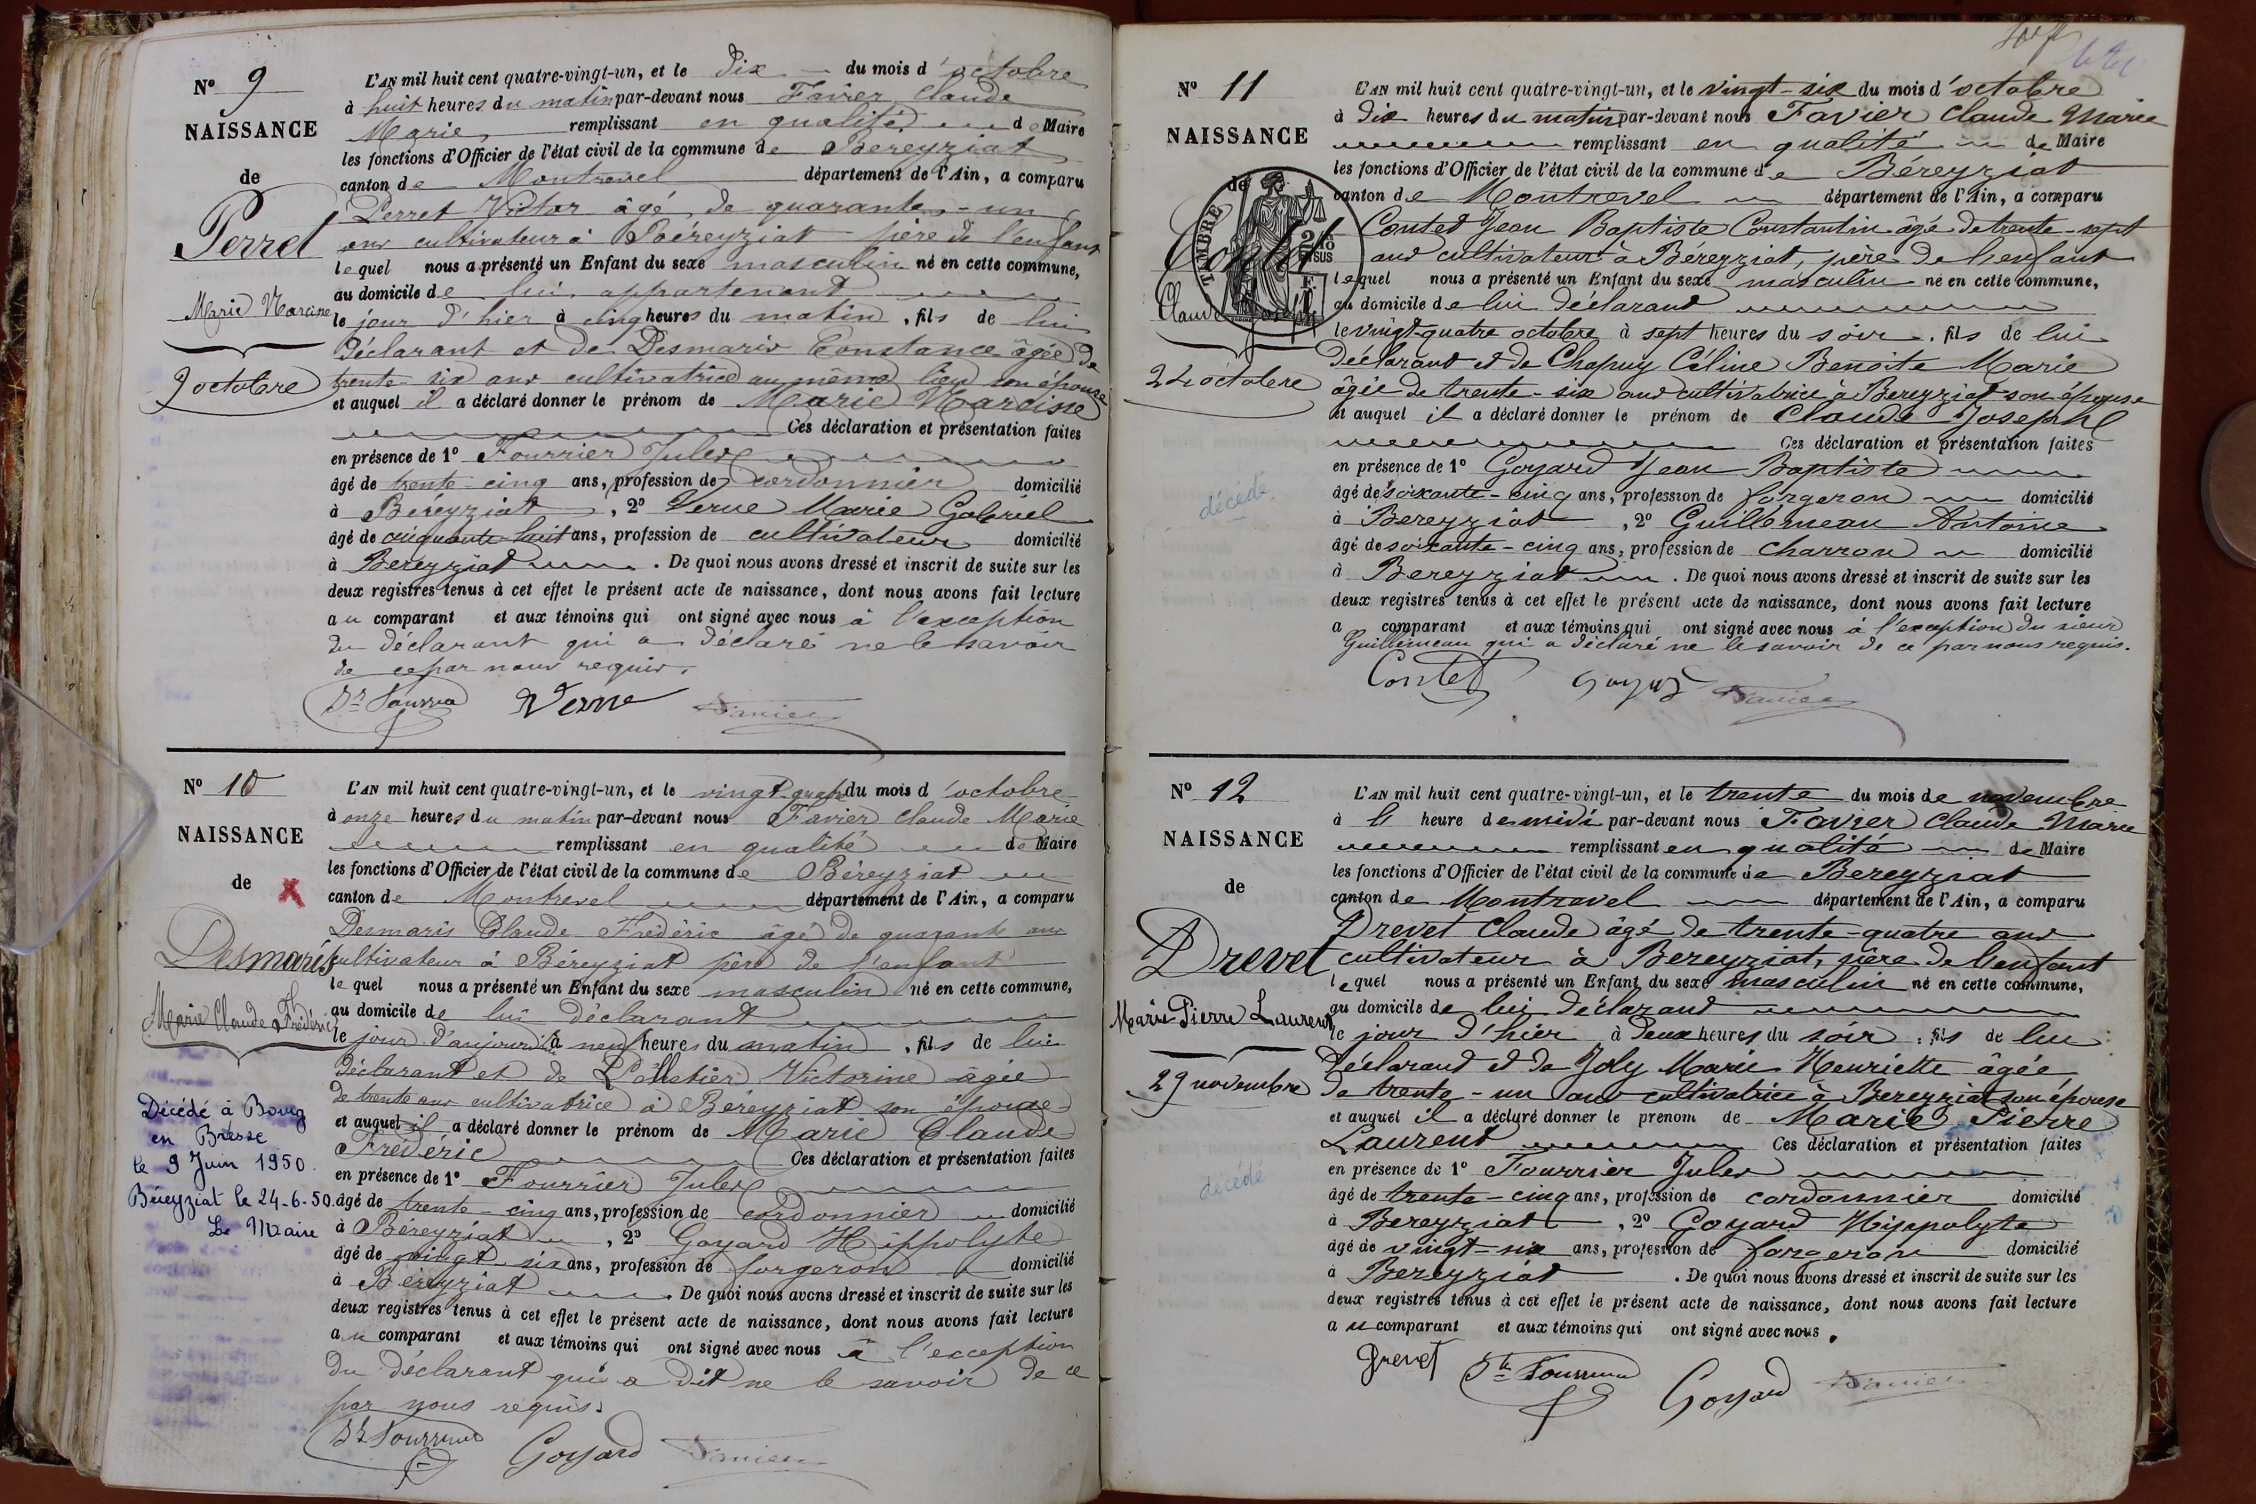 Nº 9
NAISSANCE
de
Perret
Marie Narcisse
9 octobre
L'AN mil huit cent quatre-vingt-un, et le dix du mois d'octobre
à huit heures du matin par-devant nous Favier Claude
Marie remplissant en qualité de Maire
les fonctions d'Officier de l'état civil de la commune de Béreyziat
canton de Montrevel département de l'Ain, a comparu
Perret Victor âgé de quarante-un
ans cultivateur à Béreyziat père de l'enfant
lequel nous a présenté un Enfant du sexe masculin né en cette commune,
au domicile de lui appartenant
le jour d'hier à cinq heures du matin, fils de lui
déclarant et de Desmaris Constance âgée de
trente-six ans cultivatrice au même lieu son épouse
et auquel il a déclaré donner le prénom de Marie Narcisse
Ces déclaration et présentation faites
en présence de 1º Fourrier Jules
âgé de trente-cinq ans, profession de cordonnier domicilié
à Béreyziat, 2º Verne Marie Gabriel
âgé de cinquante-huit ans, profession de cultivateur domicilié
à Béreyziat. De quoi nous avons dressé et inscrit de suite sur les
deux registres tenus à cet effet le présent acte de naissance, dont nous avons fait lecture
au comparant et aux témoins qui ont signé avec nous à l'exception
du déclarant qui a déclaré ne le savoir
de ce par nous requis.
Verne Favier
Nº 10
NAISSANCE
de X
Desmaris
Marie Claude Frédéric
Décédé à Bourg
en Bresse
le 9 Juin 1950.
Béreyziat le 24-6-50.
Le Maire
L'AN mil huit cent quatre-vingt-un, et le vingt-quatre du mois d'octobre
à onze heures du matin par-devant nous Favier Claude Marie
remplissant en qualité de Maire
les fonctions d'Officier de l'état civil de la commune de Béreyziat
canton de Montrevel département de l'Ain, a comparu
Desmaris Claude Frédéric âgé de quarante ans
cultivateur à Béreyziat père de l'enfant
lequel nous a présenté un Enfant du sexe masculin né en cette commune,
au domicile de lui déclarant
le jour d'aujourd'hui à neuf heures du matin, fils de lui
déclarant et de Victorine âgée
de trente ans cultivatrice à Béreyziat son épouse
et auquel il a déclaré donner le prénom de Marie Claude
Frédéric Ces déclaration et présentation faites
en présence de 1º Fourrier Jules
âgé de trente-cinq ans, profession de cordonnier domicilié
à Béreyziat, 2º Goyard Hippolyte
âgé de vingt-six ans, profession de forgeron domicilié
à Béreyziat. De quoi nous avons dressé et inscrit de suite sur les
deux registres tenus à cet effet le présent acte de naissance, dont nous avons fait lecture
au comparant et aux témoins qui ont signé avec nous à l'exception
du déclarant qui a dit ne le savoir de ce
par nous requis.
Goyard Favier
Nº 11
NAISSANCE
de
TIMBRE
Contet
Claude Joseph
24 octobre
décédé
L'AN mil huit cent quatre-vingt-un, et le vingt-six du mois d'octobre
à dix heures du matin par-devant nous Favier Claude Marie
remplissant en qualité de Maire
les fonctions d'Officier de l'état civil de la commune de Béreyziat
canton de Montrevel département de l'Ain, a comparu
Contet Jean Baptiste Constantin âgé de trente-sept
ans cultivateur à Béreyziat, père de l'enfant
lequel nous a présenté un Enfant du sexe masculin né en cette commune,
au domicile de lui déclarant
le vingt-quatre octobre à sept heures du soir, fils de lui
déclarant et de Chapuy Céline Benoite Marie
âgée de trente-six ans cultivatrice à Béreyziat son épouse
et auquel il a déclaré donner le prénom de Claude Joseph
Ces déclaration et présentation faites
en présence de 1º Goyard Jean Baptiste
âgé de soixante-cinq ans, profession de forgeron domicilié
à Bereyziat, 2º Guillemeau Antoine
âgé de soixante-cinq ans, profession de charron domicilié
à Bereyziat. De quoi nous avons dressé et inscrit de suite sur les
deux registres tenus à cet effet le présent acte de naissance, dont nous avons fait lecture
a comparant et aux témoins qui ont signé avec nous à l'exception du sieur
Guillemeau qui a déclaré ne le savoir de ce par nous requis.
Contet Goyard Favier
Nº 12
NAISSANCE
de
Drevet
Marie Pierre Laurent
29 novembre
décédé
L'AN mil huit cent quatre-vingt-un, et le trente du mois de novembre
à heure de midi par-devant nous Favier Claude Marie
remplissant en qualité de Maire
les fonctions d'Officier de l'état civil de la commune de Bereyziat
canton de Montrevel département de l'Ain, a comparu
Drevet Claude âgé de trente-quatre ans
cultivateur à Bereyziat, père de l'enfant
lequel nous a présenté un Enfant du sexe masculin né en cette commune,
au domicile de lui déclarant
le jour d'hier à deux heures du soir, fils de lui
déclarant et de Joly Marie Henriette âgée
de trente-un ans cultivatrice à Bereyziat son épouse
et auquel il a déclaré donner le prénom de Marie Pierre
Laurent Ces déclaration et présentation faites
en présence de 1º Fourrier Jules
âgé de trente-cinq ans, profession de cordonnier domicilié
à Bereyziat, 2º Goyard Hippolyte
âgé de vingt-six ans, profession de forgeron domicilié
à Bereyziat. De quoi nous avons dressé et inscrit de suite sur les
deux registres tenus à cet effet le présent acte de naissance, dont nous avons fait lecture
au comparant et aux témoins qui ont signé avec nous.
Drevet Goyard Favier